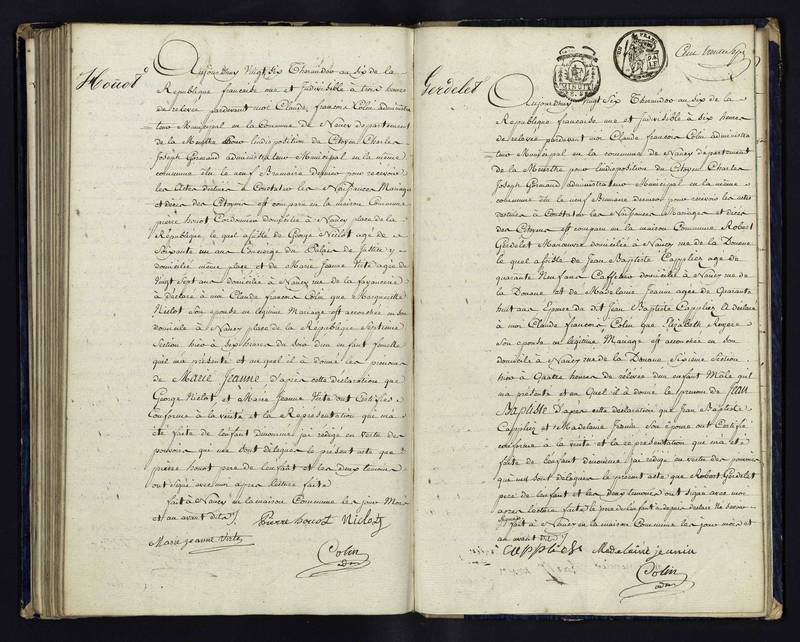 Houot
Aujourdhuy Vingt Six Thermidor an Six de la
République française une et Indivisible à trois heures
de relevée pardevant moi Claude françois Colin administra
teur Municipal en la Commune de Nancy département
de la Meurthe pour lindisposition du Citoyen Charles
Joseph Gormand administrateur Municipal en la même
commune élu le neuf Brumaire dernier pour recevoir
les Actes destinés à Constater les Naissances Mariages
et décès des Citoyens est comparu en la maison Commune
pierre houot Cordonnier domicilié à Nancy place de la
République, lequel assisté de George Niclot agé de
Soixante un ans Concierge du Palais de Justice y
domicilié même place et de Marie Jeanne agée de
Vingt Sept ans domiciliée à Nancy rue de la fayancerie
à déclaré à moi Claude françois Colin que Marguerite
Niclot Son épouse en légitime Mariage est accouchée en son
domicile à Nancy place de la République Septieme
Section hier à six heures du soir d'un enfant femelle
quil ma présenté et auquel il à donné les prenoms
de Marie Jeanne d'après cette déclaration que
George Niclot et Marie Jeanne ont Certifiés
Conforme à la vérité et la Représentation qui m'a
été faite de lenfant dénommé jai rédigé en vertu des
pouvoirs qui me sont délégués le présent acte que
pierre houot père de lenfant et les deux témoins
ont Signé avec moi après lecture faite
fait à Nancy en la maison Commune les jour Mois
et an avant dits
Pierre houot Niclot
Marie jeanne
Colin
adm
Gerdelet
Aujourdhuy Vingt Six Thermidor an Six de la
République française une et Indivisible à Six heures
de relevée pardevant moi Claude françois Colin administra
teur Municipal en la commune de Nancy département
de la Meurthe pour lindisposition du Citoyen Charles
Joseph Gormand administrateur Municipal en la même
commune élu le neuf Brumaire dernier pour recevoir les actes
destinés à Constater les Naissances Mariages et décès
des Citoyens est comparu en la maison Commune Robert
Gerdelet Manœuvre domicilié à Nancy rue de la Douane
le quel assisté de Jean Baptiste Capplier agé de
quarante Neuf ans Caffetier domicilié à Nancy rue de
la Douane et de Madelaine Jeanin agée de Quarante
huit ans Epouse du dit Jean Baptiste Capplier A déclaré
à moi Claude françois Colin que Elizabeth
Son épouse en légitime Mariage est accouchée en son
domicile à Nancy rue de la Douane Sixieme Section
hier à Quatre heures de relevée d'un enfant Male quil
ma présenté et au Quel il à donné le prenom de Jean
Baptiste d'après cette déclaration que Jean Baptiste
Capplier et Madelaine Jeanin Son épouse ont Certifié
conforme à la vérité et la représentation qui ma été
faite de lenfant dénommé jai rédigé en vertu des pouvoirs
qui me sont délégués le présent acte que Robert Gerdelet
père de lenfant et les deux témoins ont signé avec moi
après lecture faite le père de lenfant à déclaré ne savoir
signer
fait à Nancy en la maison Commune les jour mois et
an avant dits
Capplier Madelaine jeanin
Colin
adm